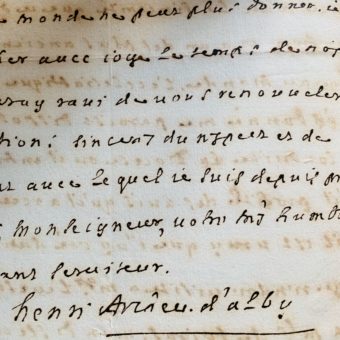 monde ne peut plus donner. ie
avec ioye le temps de no
ravy de vous renouveler
tions sincers du respec et de
avec lequel ie suis depuis
monseigneur, votre humb
serviteur.
henri d'alby